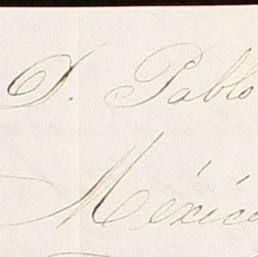 D. Pablo
México